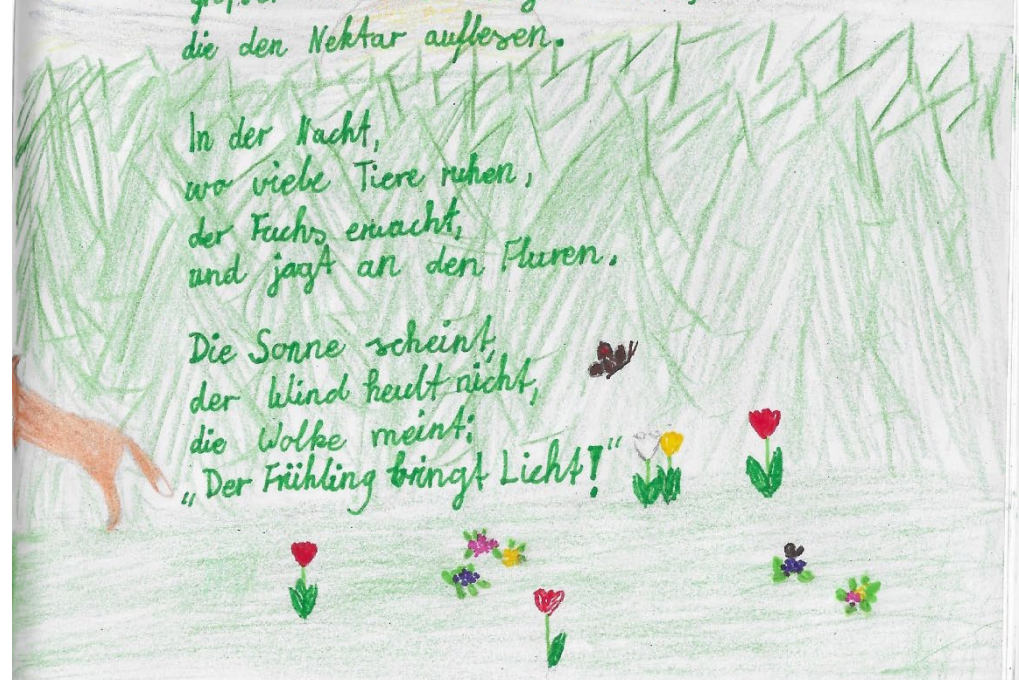 die den Nektar auflesen.
In der Nacht,
wo viele Tiere ruhen,
der Fuchs erwacht,
und jagt an den Fluren.
Die Sonne scheint,
der Wind heult nicht,
die Wolke meint:
„Der Frühling bringt Licht!“